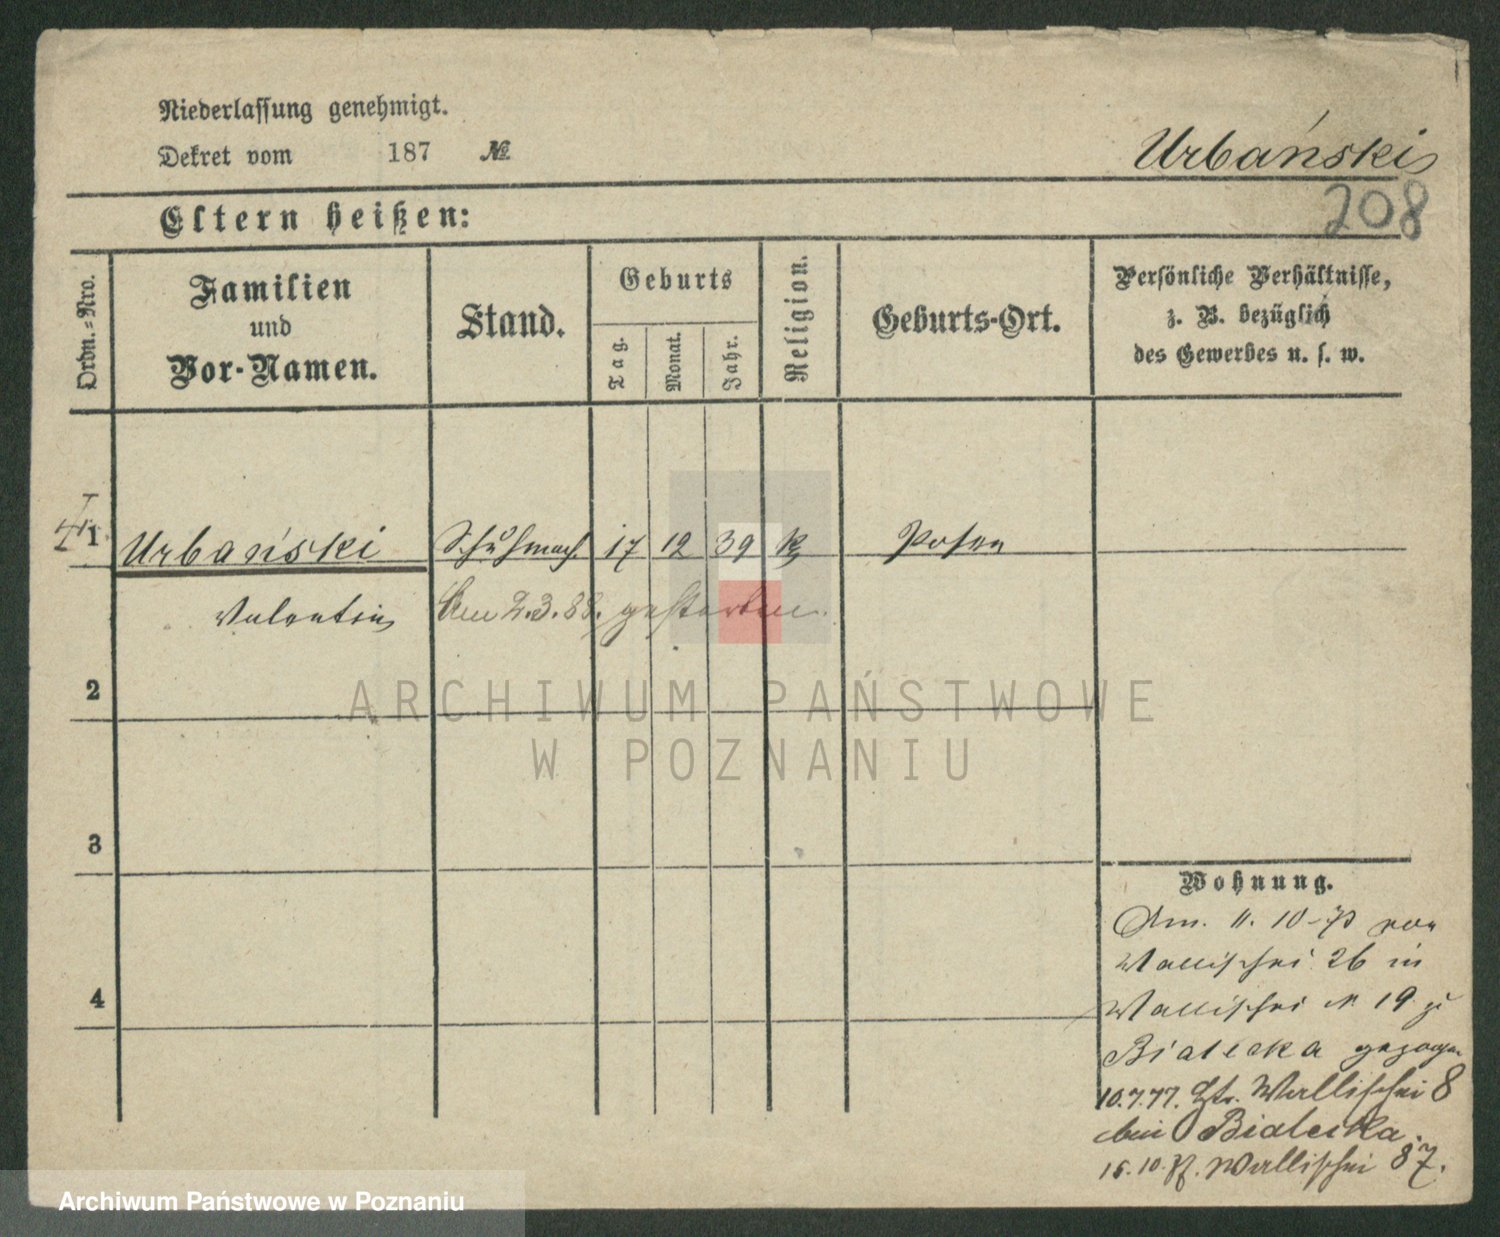 Niederlassung genehmigt.
Dekret vom 187 №
Urbański
208
Eltern heißen:
Ordn.=Nro.
Familien
und
Vor-Namen.
Stand.
Geburts
Tag.
Monat.
Jahr.
Religion.
Geburts-Ort.
Persönliche Verhältnisse,
z. B. bezüglich
des Gewerbes u. s. w.
1 Urbański Schuhmach. 17 12 39 k Posen
Valentin Am 2.3.88. gestorben.
2
3
4
Wohnung.
Am. 11. 10 von
Wallischei 26 in
Wallischei N 19 zu
Bialecka gezogen
10.7.77. Wallischei 8
bei Bialecka.
15.10. Wallischei 87.
ARCHIWUM PAŃSTWOWE
W POZNANIU
Archiwum Państwowe w Poznaniu